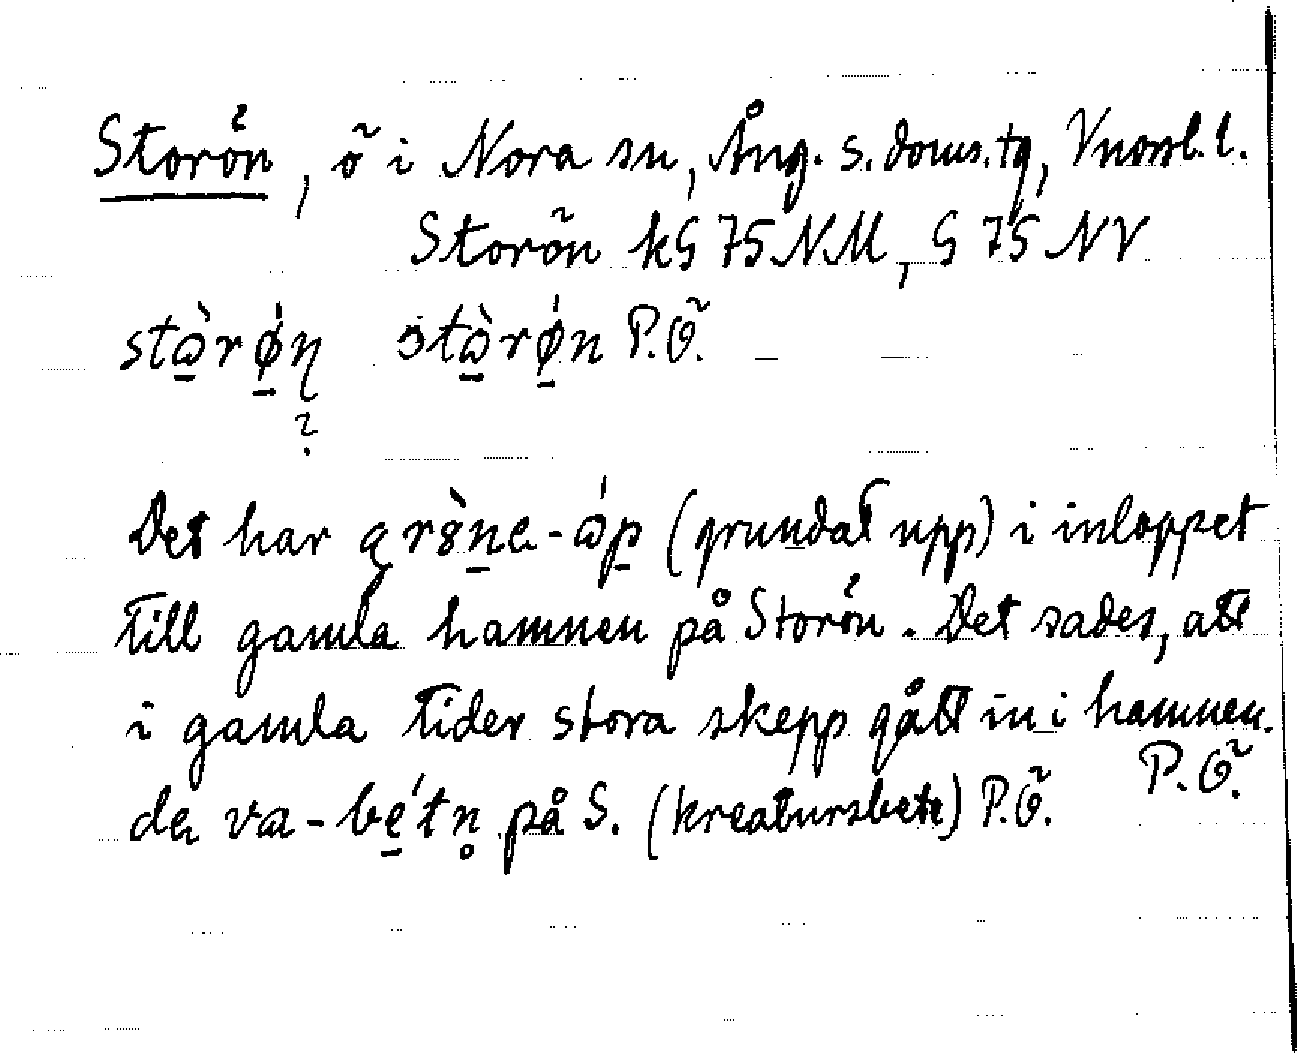 Storön, ö i Nora sn, Ång. s. doms. tg, Vnorrl. l.
Storön kG 75 NM, G 75 NV
stɷ̀rǿŋ stɷ̀rǿn P.Ö.
?
Det har grȣ̀ne-ɷ́p (grundat upp) i inloppet
till gamla hamnen på Storön. Det sades, att
i gamla tider stora skepp gått in i hamnen.
P.Ö.
da va - bétn̥ på S. (kreatursbete) P.Ö.